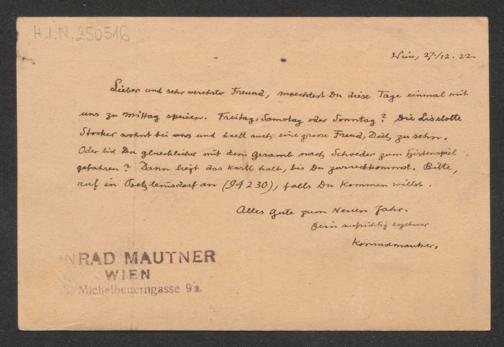 H.I.N. 250516
Wien, 27./12. 22.
Lieber und sehr verehrter Freund, moechtest Du diese Tage einmal mit
uns zu Mittag speisen. Freitag, Samstag oder Sonntag? Die Liselotte
Stocker wohnt bei uns und haett auch eine grosse Freud, Dich zu sehn.
Oder bist Du gluecklicher mit dem Gesamt nach zum Hirtenspiel
gefahren? Dann liegt das Karte halt, bis Du zurueckkommst. Bitte,
ruf in Poetzleinsdorf an (94230), falls Du kommen willst.
Alles Gute zum Neuen Jahr.
Dein aufrichtig ergebener
Konradmautner.
NRAD MAUTNER
WIEN
Michelbeuerngasse 9a